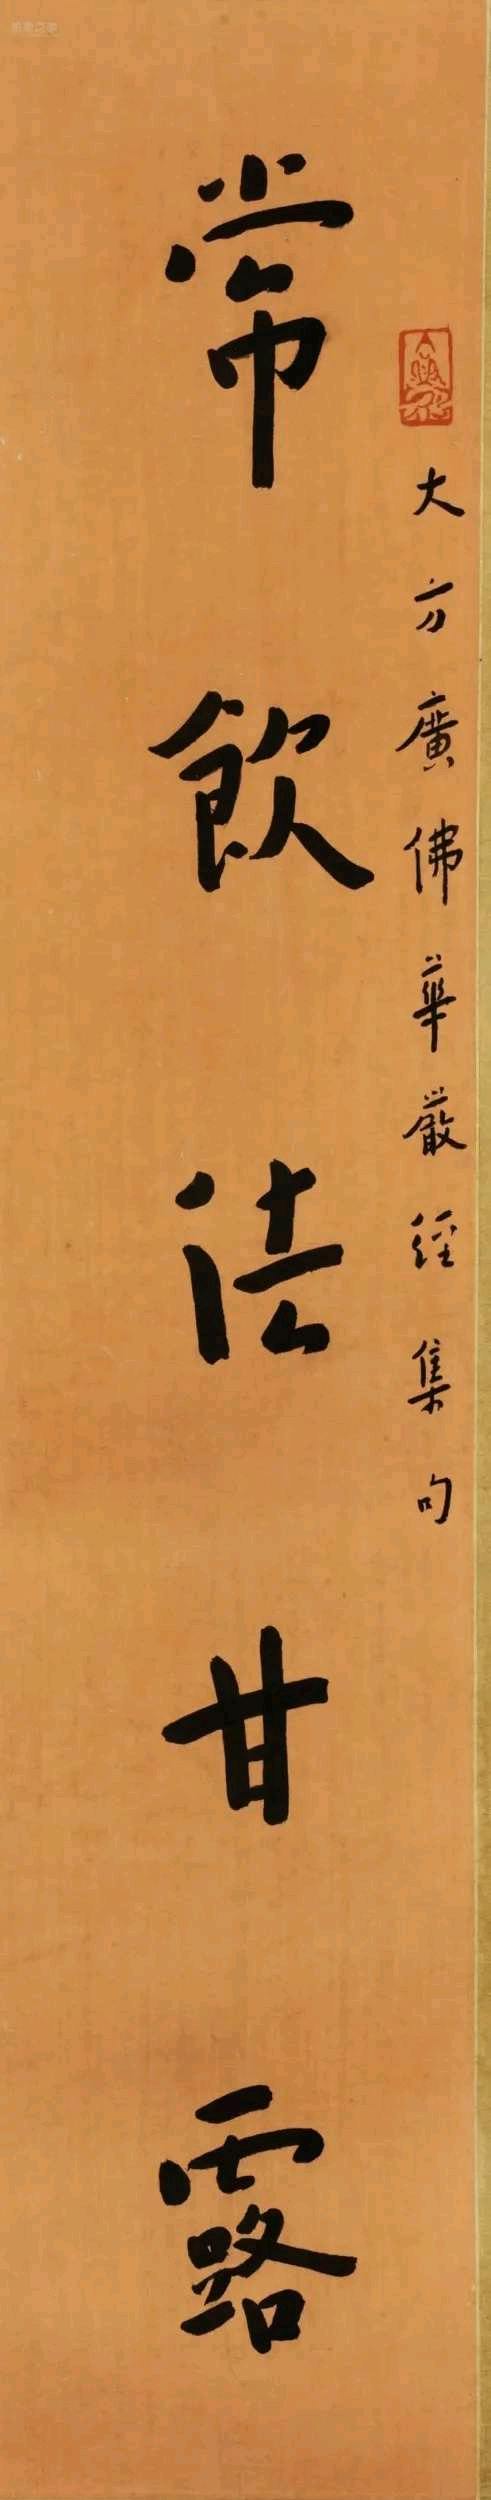 大方廣佛華嚴經集句
常飲法甘露